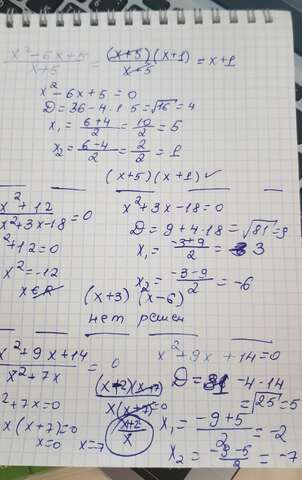 x² - 6x + 5 / x + 5 = (x+5)(x+1) / x-5 = x+1
x² - 6x + 5 = 0
D = 36 - 4 · 1 · 5 = √16 = 4
x₁ = 6+4 / 2 = 10 / 2 = 5
x₂ = 6-4 / 2 = 2 / 2 = 1
(x+5)(x+1) ✓
x² + 12 / x² + 3x - 18 = 0
²+12 = 0
x² = -12
x² + 3x - 18 = 0
D = 9 + 4 · 18 = √81 = 9
x₁ = -3+9 / 2 = 3
x₂ = -3-9 / 2 = -6
(x+3)(x-6)
нет решен
x² + 9x + 14 / x² + 7x = 0
²+7x = 0
x(x+7) = 0
x=0 x=-7
(x+2)(x+7) / x(x+7) = 0
x+2 / x
x² + 9x + 14 = 0
D = 81 - 4 · 14 = √25 = 5
x₁ = -9+5 / 2 = -2
x₂ = -9-5 / 2 = -7